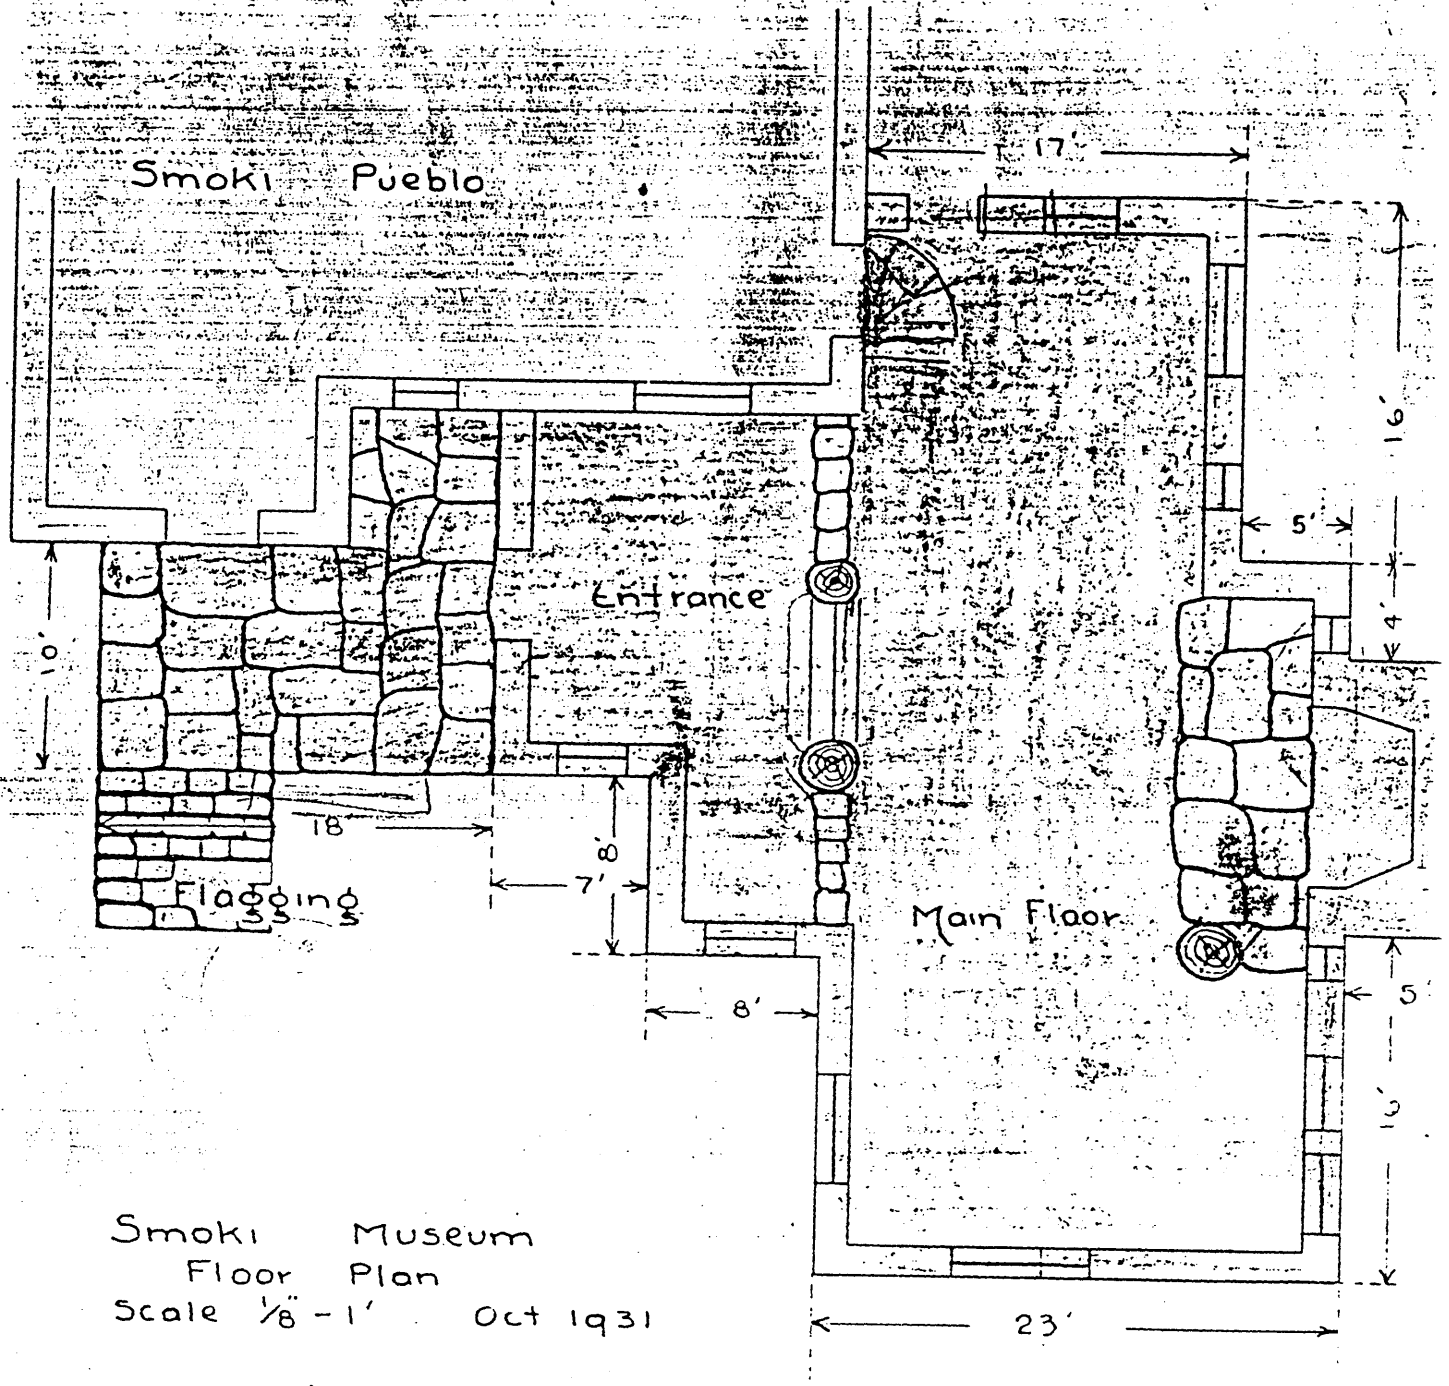 17'
Smoki Pueblo
16'
5'
Entrance
4'
10'
18'
8'
7'
Flagging
Main Floor
5'
8'
Smoki Museum
Floor Plan
Scale 1/8" - 1' Oct 1931
23'